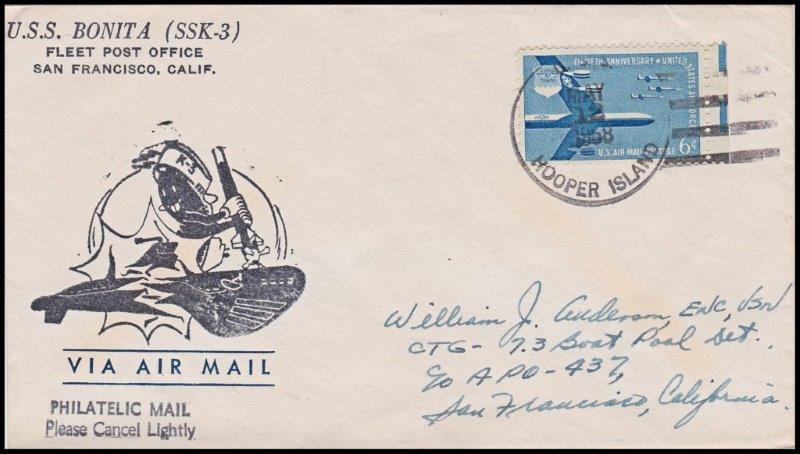 U.S.S. BONITA (SSK-3)
FLEET POST OFFICE
SAN FRANCISCO, CALIF.
FIFTIETH ANNIVERSARY ★ UNITED STATES AIR FORCE
U.S. AIR MAIL POSTAGE 6¢
MAY
12
1958
HOOPER ISLAND
K-3
VIA AIR MAIL
PHILATELIC MAIL
Please Cancel Lightly
William J. Anderson, ENC, USN
CTG- 7.3 Boat Pool Det.,
c/o APO-437,
San Francisco, California.